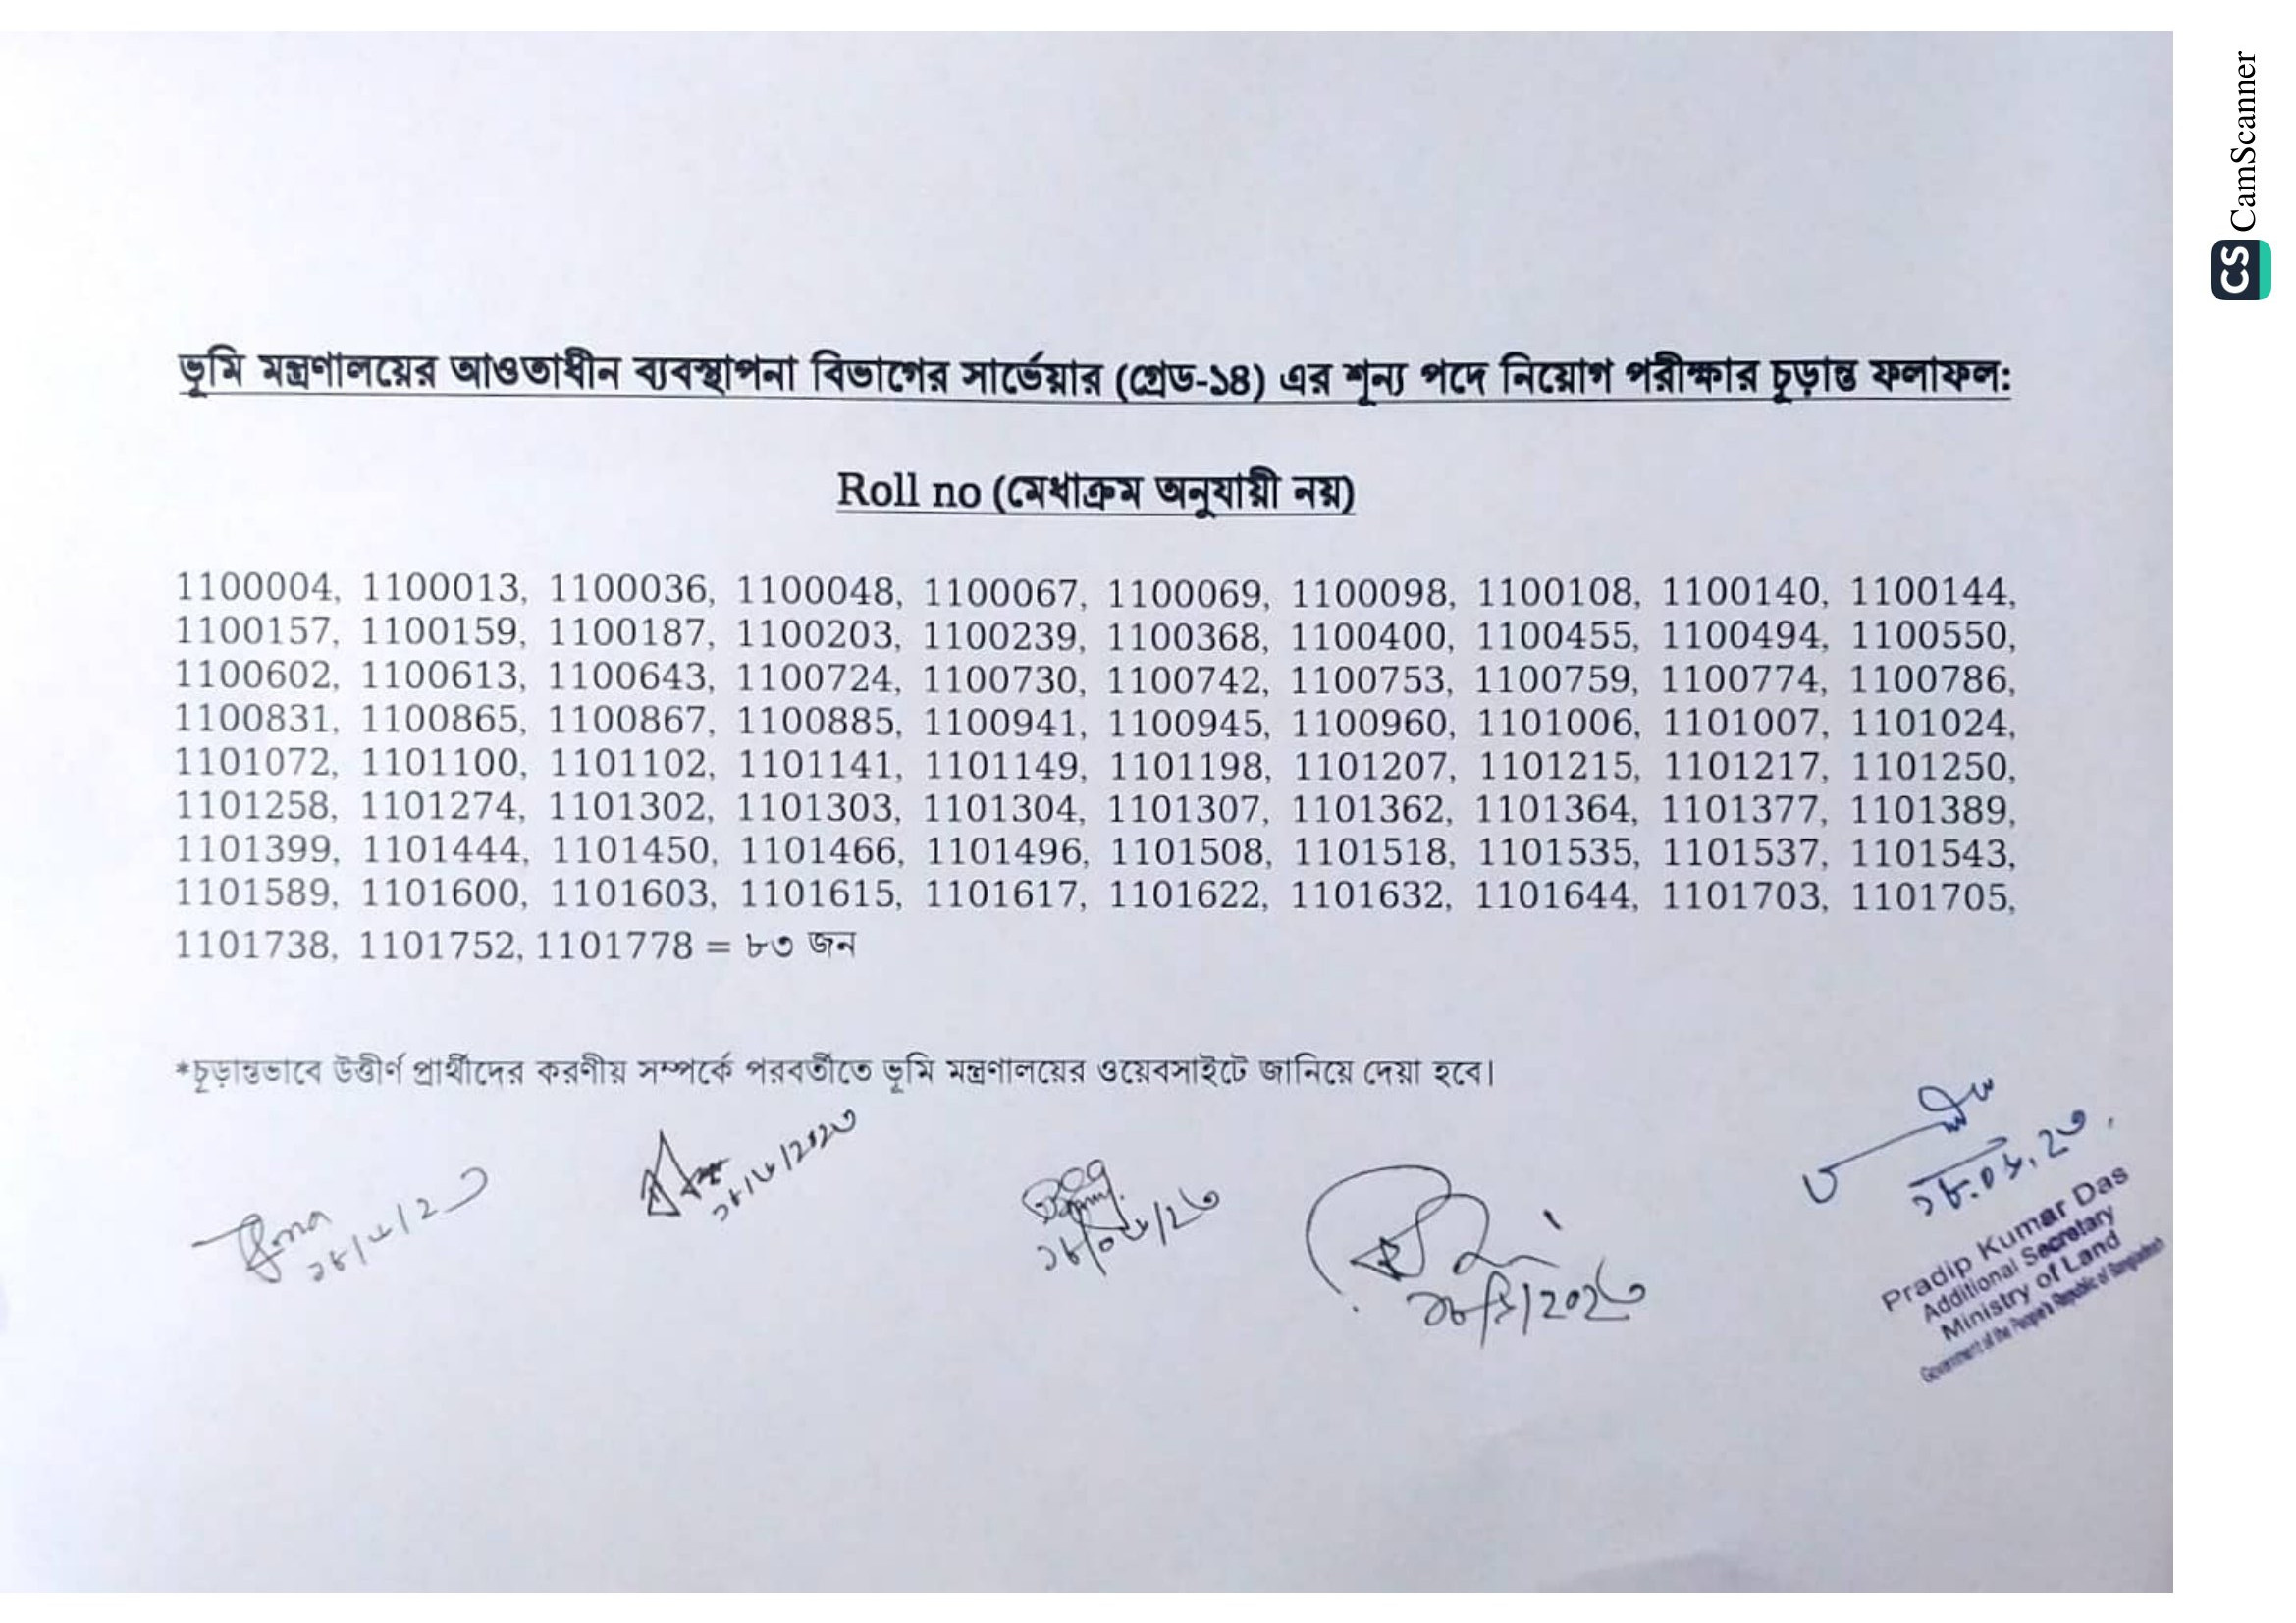 ভূমি মন্ত্রণালয়ের আওতাধীন ব্যবস্থাপনা বিভাগের সার্ভেয়ার (গ্রেড-১৪) এর শূন্য পদে নিয়োগ পরীক্ষার চূড়ান্ত ফলাফল:
Roll no (মেধাক্রম অনুযায়ী নয়)
1100004, 1100013, 1100036, 1100048, 1100067, 1100069, 1100098, 1100108, 1100140, 1100144,
1100157, 1100159, 1100187, 1100203, 1100239, 1100368, 1100400, 1100455, 1100494, 1100550,
1100602, 1100613, 1100643, 1100724, 1100730, 1100742, 1100753, 1100759, 1100774, 1100786,
1100831, 1100865, 1100867, 1100885, 1100941, 1100945, 1100960, 1101006, 1101007, 1101024,
1101072, 1101100, 1101102, 1101141, 1101149, 1101198, 1101207, 1101215, 1101217, 1101250,
1101258, 1101274, 1101302, 1101303, 1101304, 1101307, 1101362, 1101364, 1101377, 1101389,
1101399, 1101444, 1101450, 1101466, 1101496, 1101508, 1101518, 1101535, 1101537, 1101543,
1101589, 1101600, 1101603, 1101615, 1101617, 1101622, 1101632, 1101644, 1101703, 1101705,
1101738, 1101752, 1101778 = ৮৩ জন
*চূড়ান্তভাবে উত্তীর্ণ প্রার্থীদের করণীয় সম্পর্কে পরবর্তীতে ভূমি মন্ত্রণালয়ের ওয়েবসাইটে জানিয়ে দেয়া হবে।
Pradip Kumar Das
Additional Secretary
Ministry of Land
Government of the People's Republic of Bangladesh
CS CamScanner